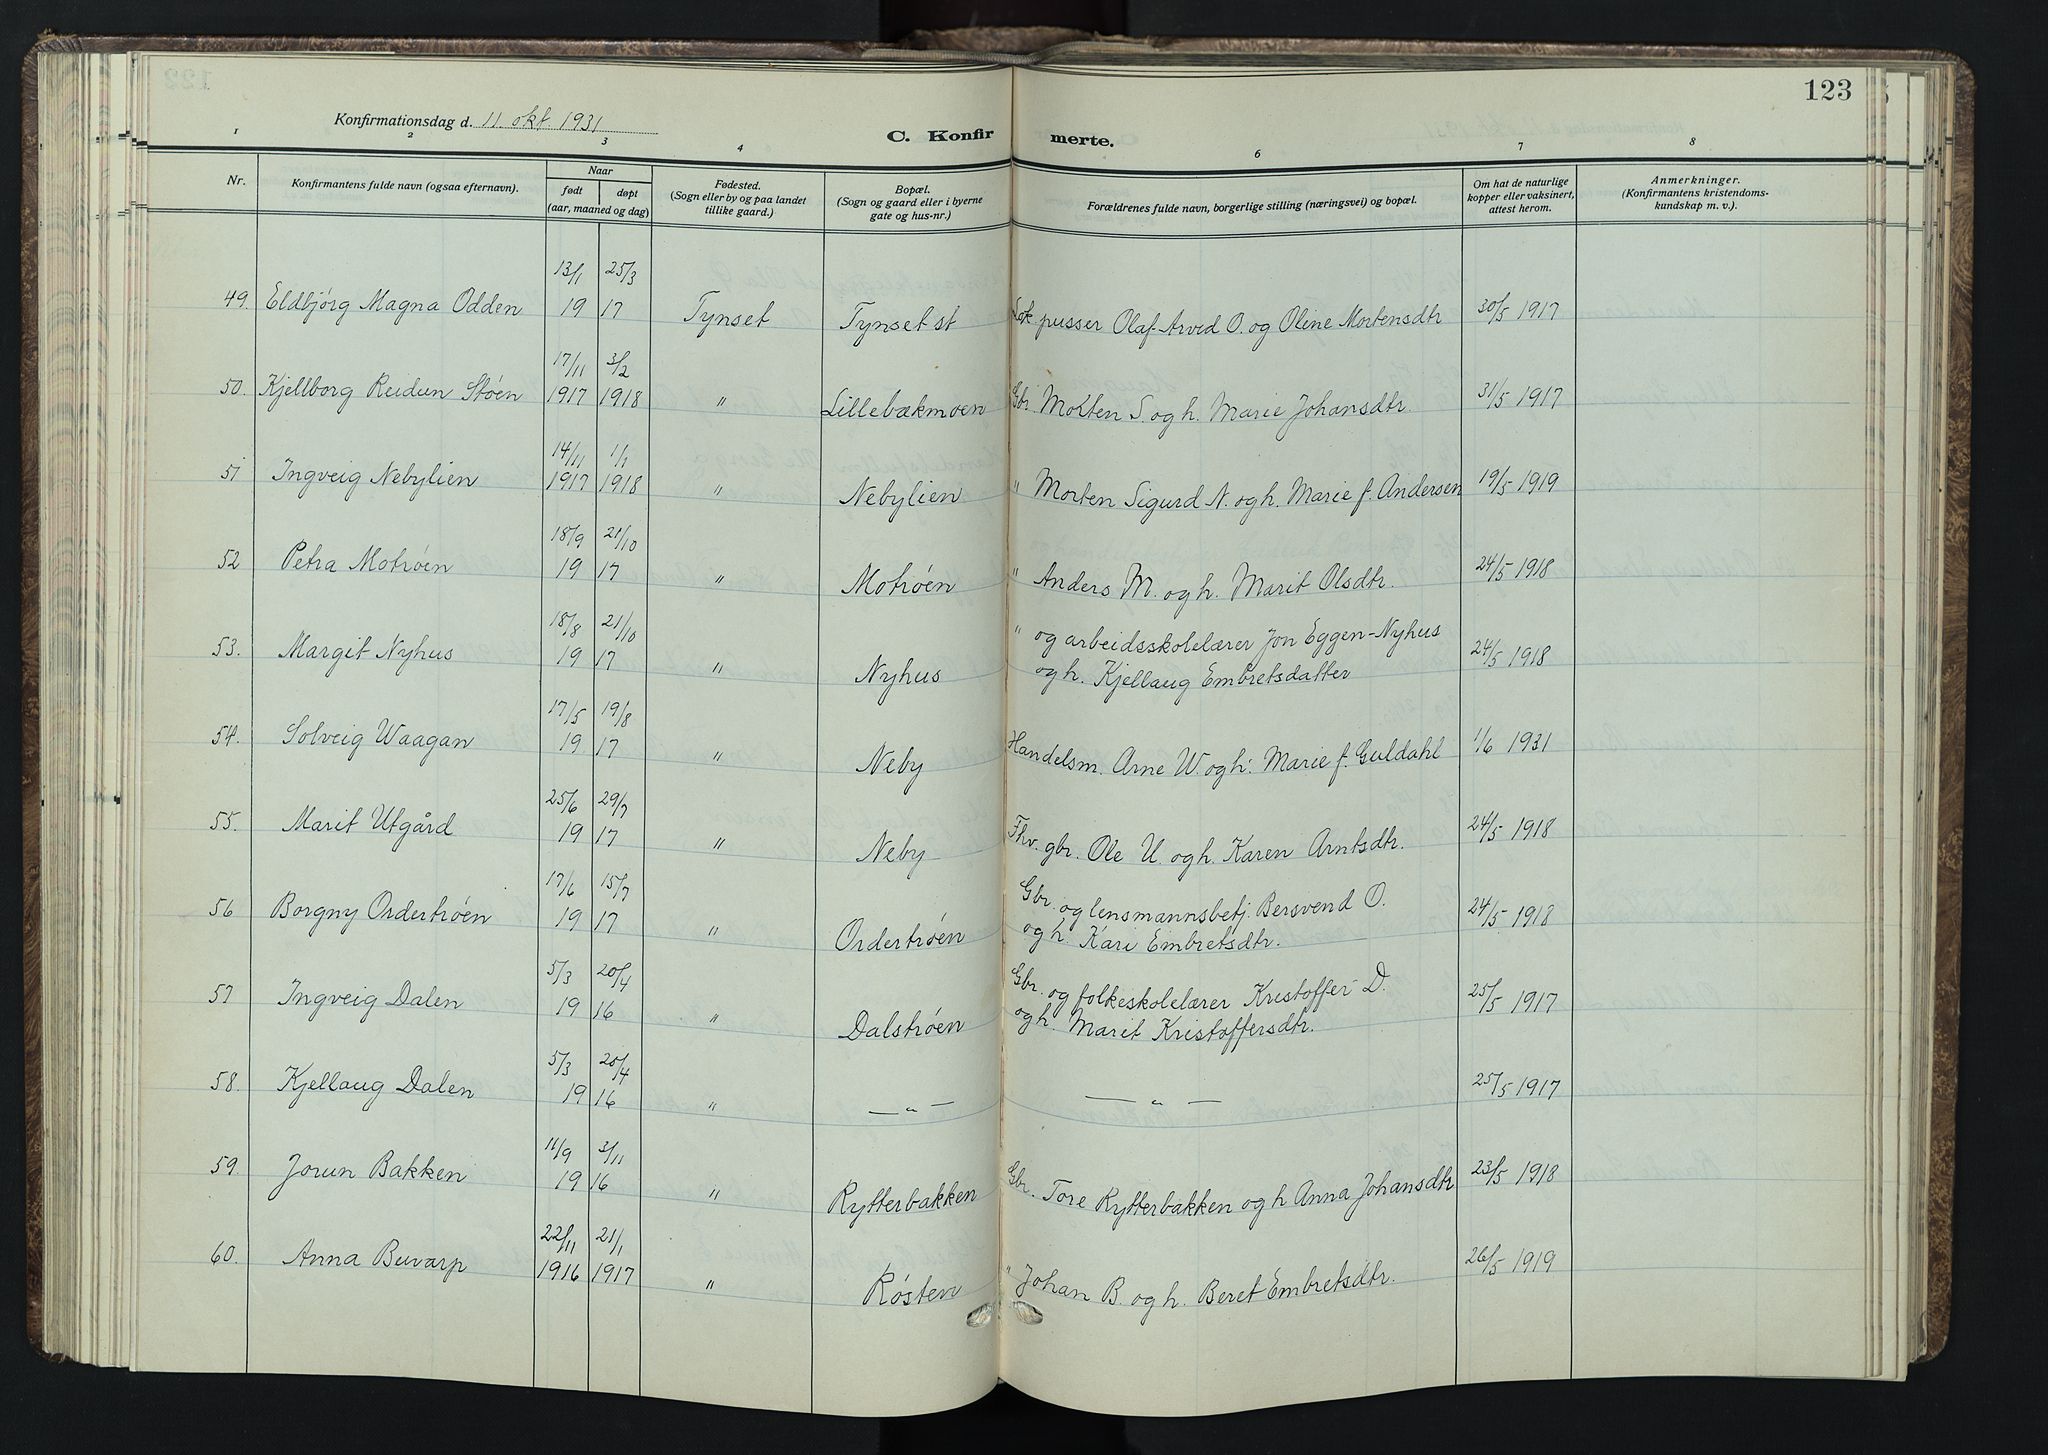 123
Konfirmationsdag d. 11. okt. 1931
C. Konfirmerte.
1 2 3 4 6 7 8
Nr.
Konfirmantens fulde navn (ogsaa efternavn).
Naar
født
døpt
(aar, maaned og dag)
Fødested.
(Sogn eller by og paa landet
tillike gaard.)
Bopæl.
(Sogn og gaard eller i byerne
gate og hus-nr.)
Forældrenes fulde navn, borgerlige stilling (næringsvei) og bopæl.
Om hat de naturlige
kopper eller vaksinert,
attest herom.
Anmerkninger.
(Konfirmantens kristendoms-
kundskap m. v.).
13/1 25/3
49. Eldbjörg Magna Odden 19 17 Tynset Tynset st Lok pusser Olaf Arved O. og Oline Mortensdtr 30/5 1917
17/11 3/2
50. Kjellborg Reidun Stöen 1917 1918 " Lillebækmoen Gbr. Morten S. og h. Marie Johansdtr. 31/5 1917
14/11 1/1
51 Ingveig Nebylien 1917 1918 " Nebylien " Morten Sigurd N. og h. Marie f. Andersen 19/5 1919
18/9 21/10
52 Petra Motröen 19 17 " Motröen " Anders M. og h. Marit Olsdtr. 24/5 1918
18/8 21/10
53. Margit Nyhus 19 17 " Nyhus " og arbeidsskolelærer Jon Eggen-Nyhus
og h. Kjellaug Embretsdatter 24/5 1918
17/5 19/8
54. Solveig Waagan 19 17 " Neby Handelsm. Arne W. og h. Marie f. Guldahl 1/6 1931
25/6 29/7
55. Marit Utgård 19 17 " Neby Fhv. gbr. Ole U. og h. Karen Arntsdtr. 24/5 1918
17/6 15/7
56 Borgny Ordertröen 19 17 " Ordertröen Gbr. og lensmannsbetj. Bersvend O.
og h. Kari Embretsdtr. 24/5 1918
5/3 20/4
57 Ingveig Dalen 19 16 " Dalströen Gbr. og folkeskolelærer Kristoffer D.
og h. Marit Kristoffersdtr. 25/5 1917
5/3 20/4
58. Kjellaug Dalen 19 16 " — " — — " — 25/5 1917
11/9 3/11
59. Jorun Bakken 19 16 " Rytterbakken Gbr. Tore Rytterbakken og h Anna Johansdtr 23/5 1918
22/11 21/1
60. Anna Buvarp 1916 1917 " Rösten " Johan B. og h. Beret Embretsdtr. 26/5 1919